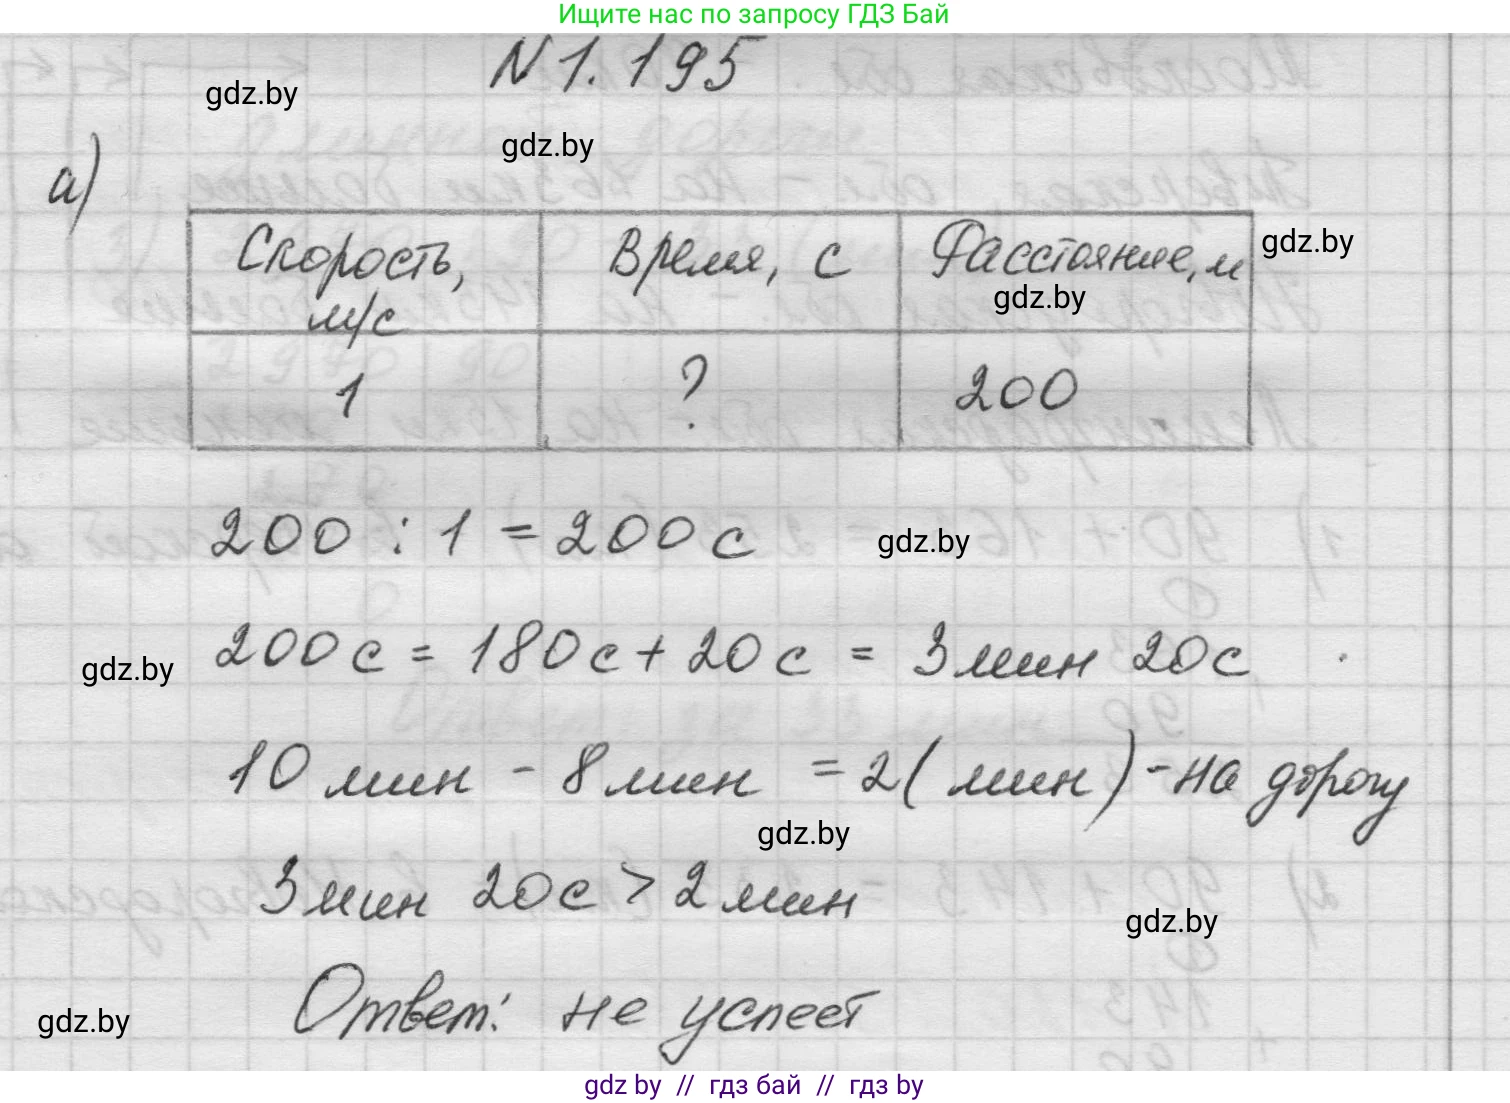 Ищите нас по запросу ГДЗ Бай
N 1.195
gdz.by
gdz.by
а)
Скорость, м/с
Время, с
Расстояние, м
gdz.by
gdz.by
1
?
200
200 : 1 = 200 с
gdz.by
gdz.by
200 с = 180 с + 20 с = 3 мин 20 с
10 мин - 8 мин = 2 (мин) - на дорогу
gdz.by
3 мин 20 с > 2 мин
gdz.by
Ответ: не успеет
gdz.by
gdz by // гдз бай // гдз by